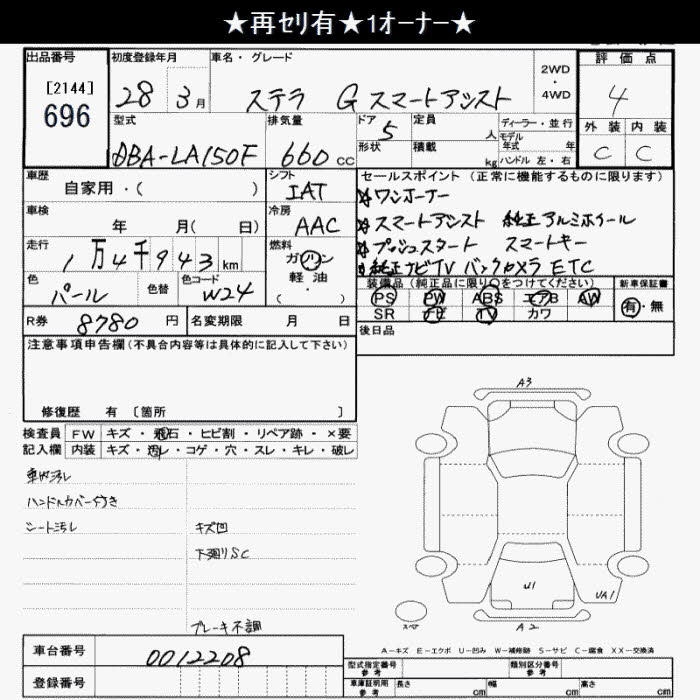 ★再ｾﾘ有★1ｵｰﾅｰ★
出品番号
[2144]
696
初度登録年月
28 3月
車名・グレード
ステラ G スマートアシスト
2WD
・
4WD
評価点
4
外装 内装
C C
型式
DBA-LA150F
排気量
660 CC
ドア 5
形状
定員 人
積載 kg
ディーラー・並行
モデル年式 年
ハンドル 左・右
車歴
自家用・( )
シフト
IAT
車検
年 月( 日)
冷房
AAC
走行
1万4千943km
燃料
ガソリン
軽油
( )
色
パール
色替
色コード
W24
R券 8780円
名変期限 月 日
セールスポイント (正常に機能するものに限ります)
★ワンオーナー
★スマートアシスト 純正アルミホイール
★プッシュスタート スマートキー
★純正ナビTV バックカメラ ETC
装備品(純正品に限り○をつけてください)
PS PW ABS エアB AW
SR ナビ TV カワ
新車保証書
有・無
後日品
注意事項申告欄(不具合内容等は具体的に記入して下さい)
修復歴 有 〔箇所 〕
検査員 FW キズ・飛石・ヒビ割・リペア跡・×要
記入欄 内装 キズ・汚レ・コゲ・穴・スレ・キレ・破レ
車内汚レ
ハンドルカバー付き
シート汚レ
キズ凹
下廻りSC
ブレーキ不調
A3
U1
UA1
A2
スペア
A－キズ E－エクボ U－凹み W－補修跡 S－サビ C－腐食 XX－交換済
車台番号 0012208
登録番号
型式指定番号
参考
類別区分番号
参考
車庫証明用
参考
長さ cm
幅 cm
高さ cm